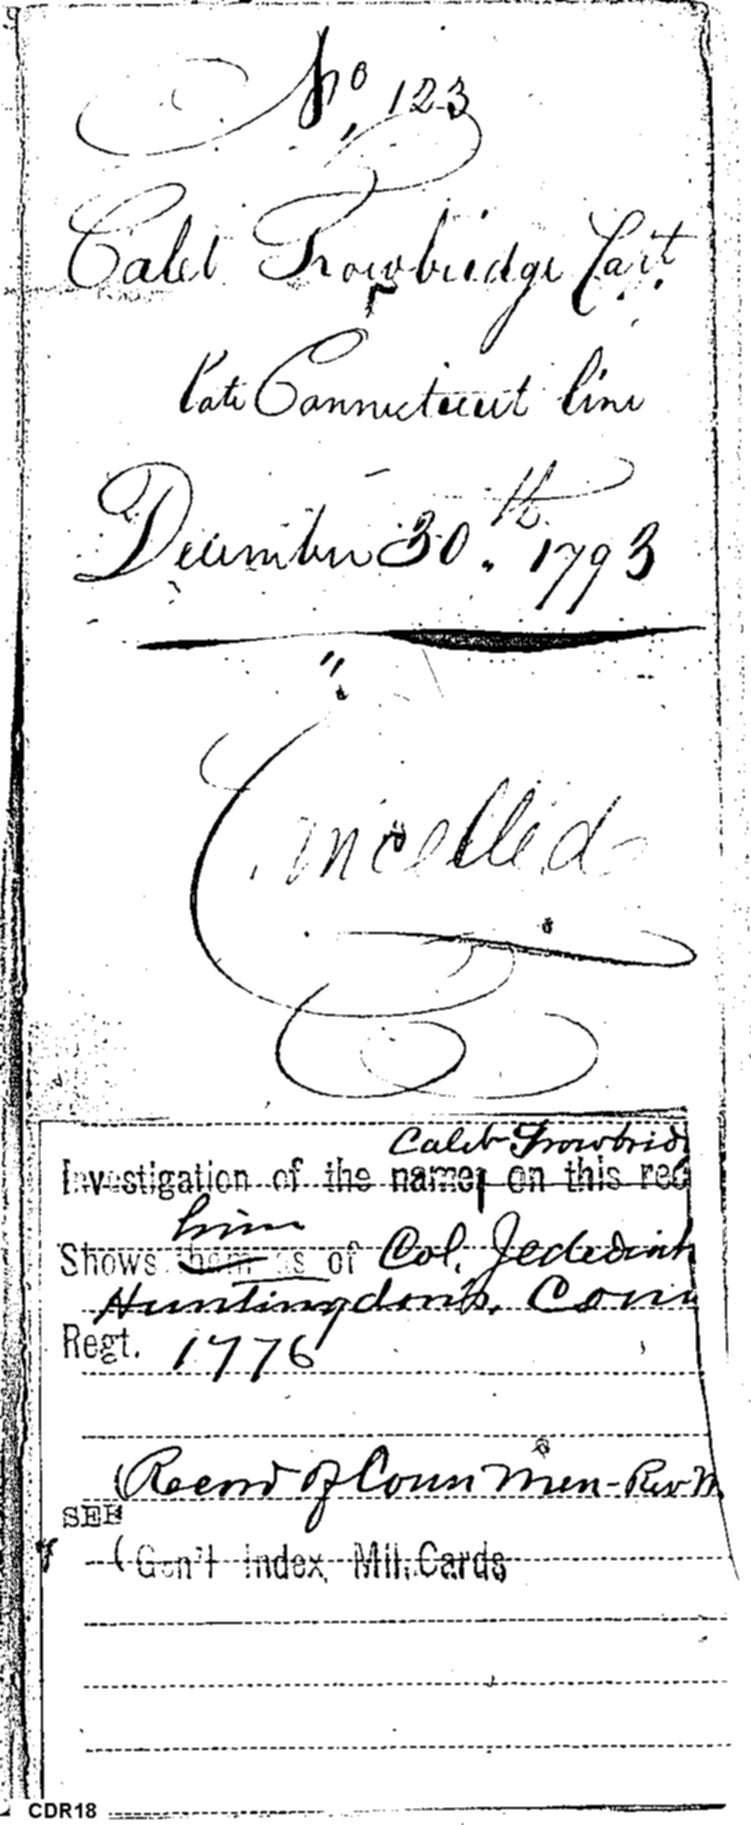 No 123
Caleb Trowbridge Capt.
late Connecticut line
December 30.th 1793
Cancelled
Caleb Trowbrid
Investigation of the name, on this rec
him
Shows them as of Col. Jedediah
Huntingdon's, Conn
Regt. 1776
(Record of Conn Men - Rev W
SEE
(Gen'l Index, Mil. Cards
CDR18